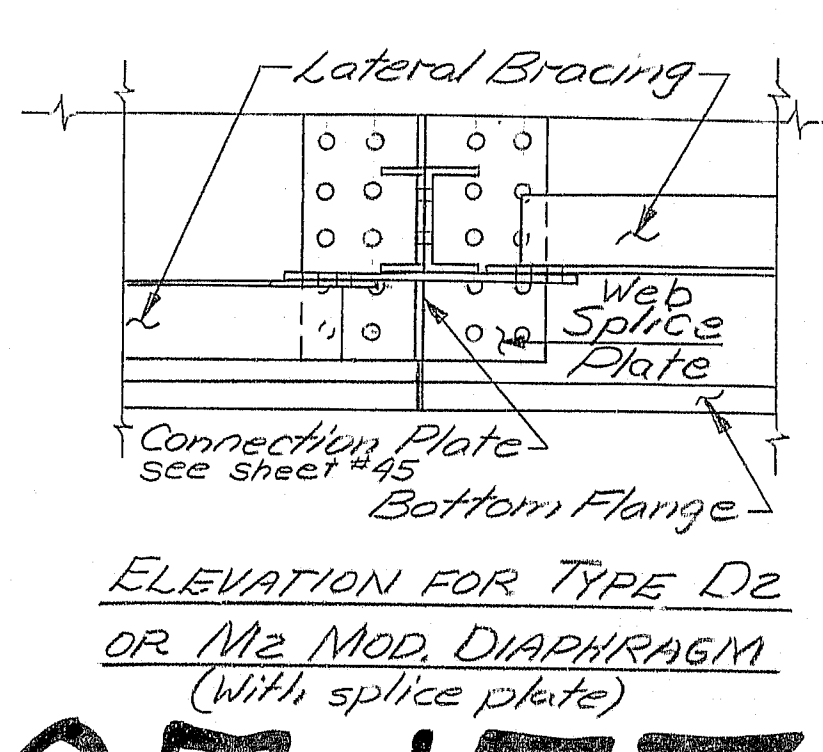 Lateral Bracing
Web
Splice
Plate
Connection Plate
see sheet #45
Bottom Flange
ELEVATION FOR TYPE D2
OR M2 MOD. DIAPHRAGM
(With splice plate)